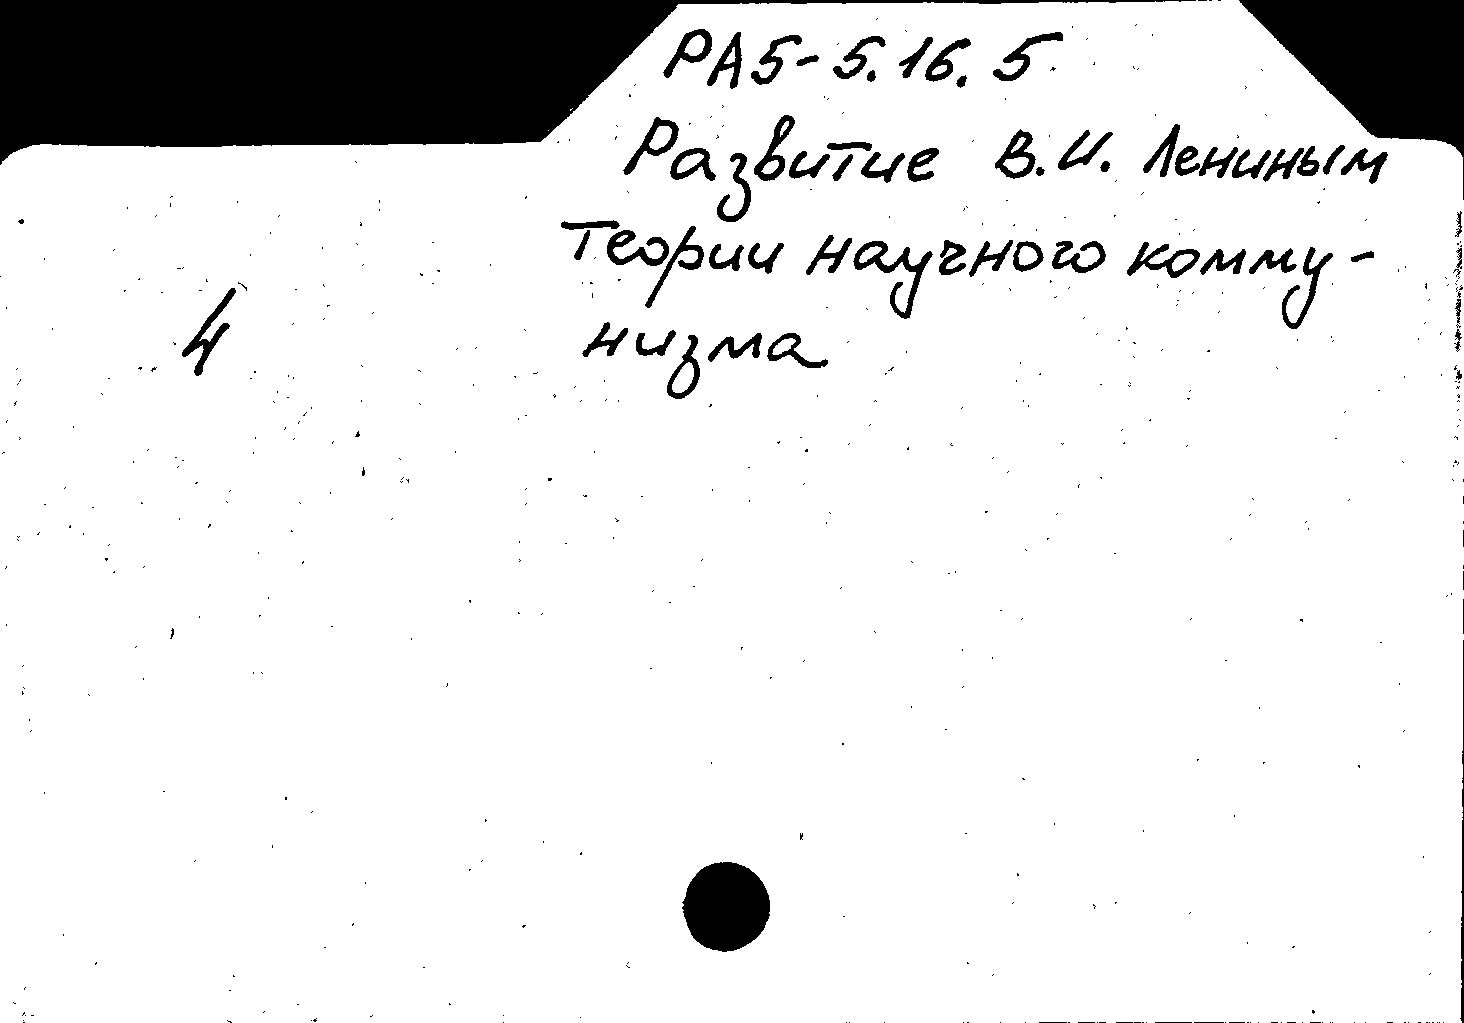 РА5-5.16.5
Развитие В.И. Лениным
теории научного комму-
низма
4